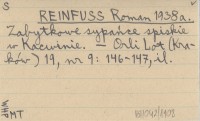 S
REINFUSS Roman 1938a.
Zabytkowe sypańce spiskie
w Kacwinie. — Orli Lot (Kra-
ków) 19, nr 9: 146-147, il.
MT